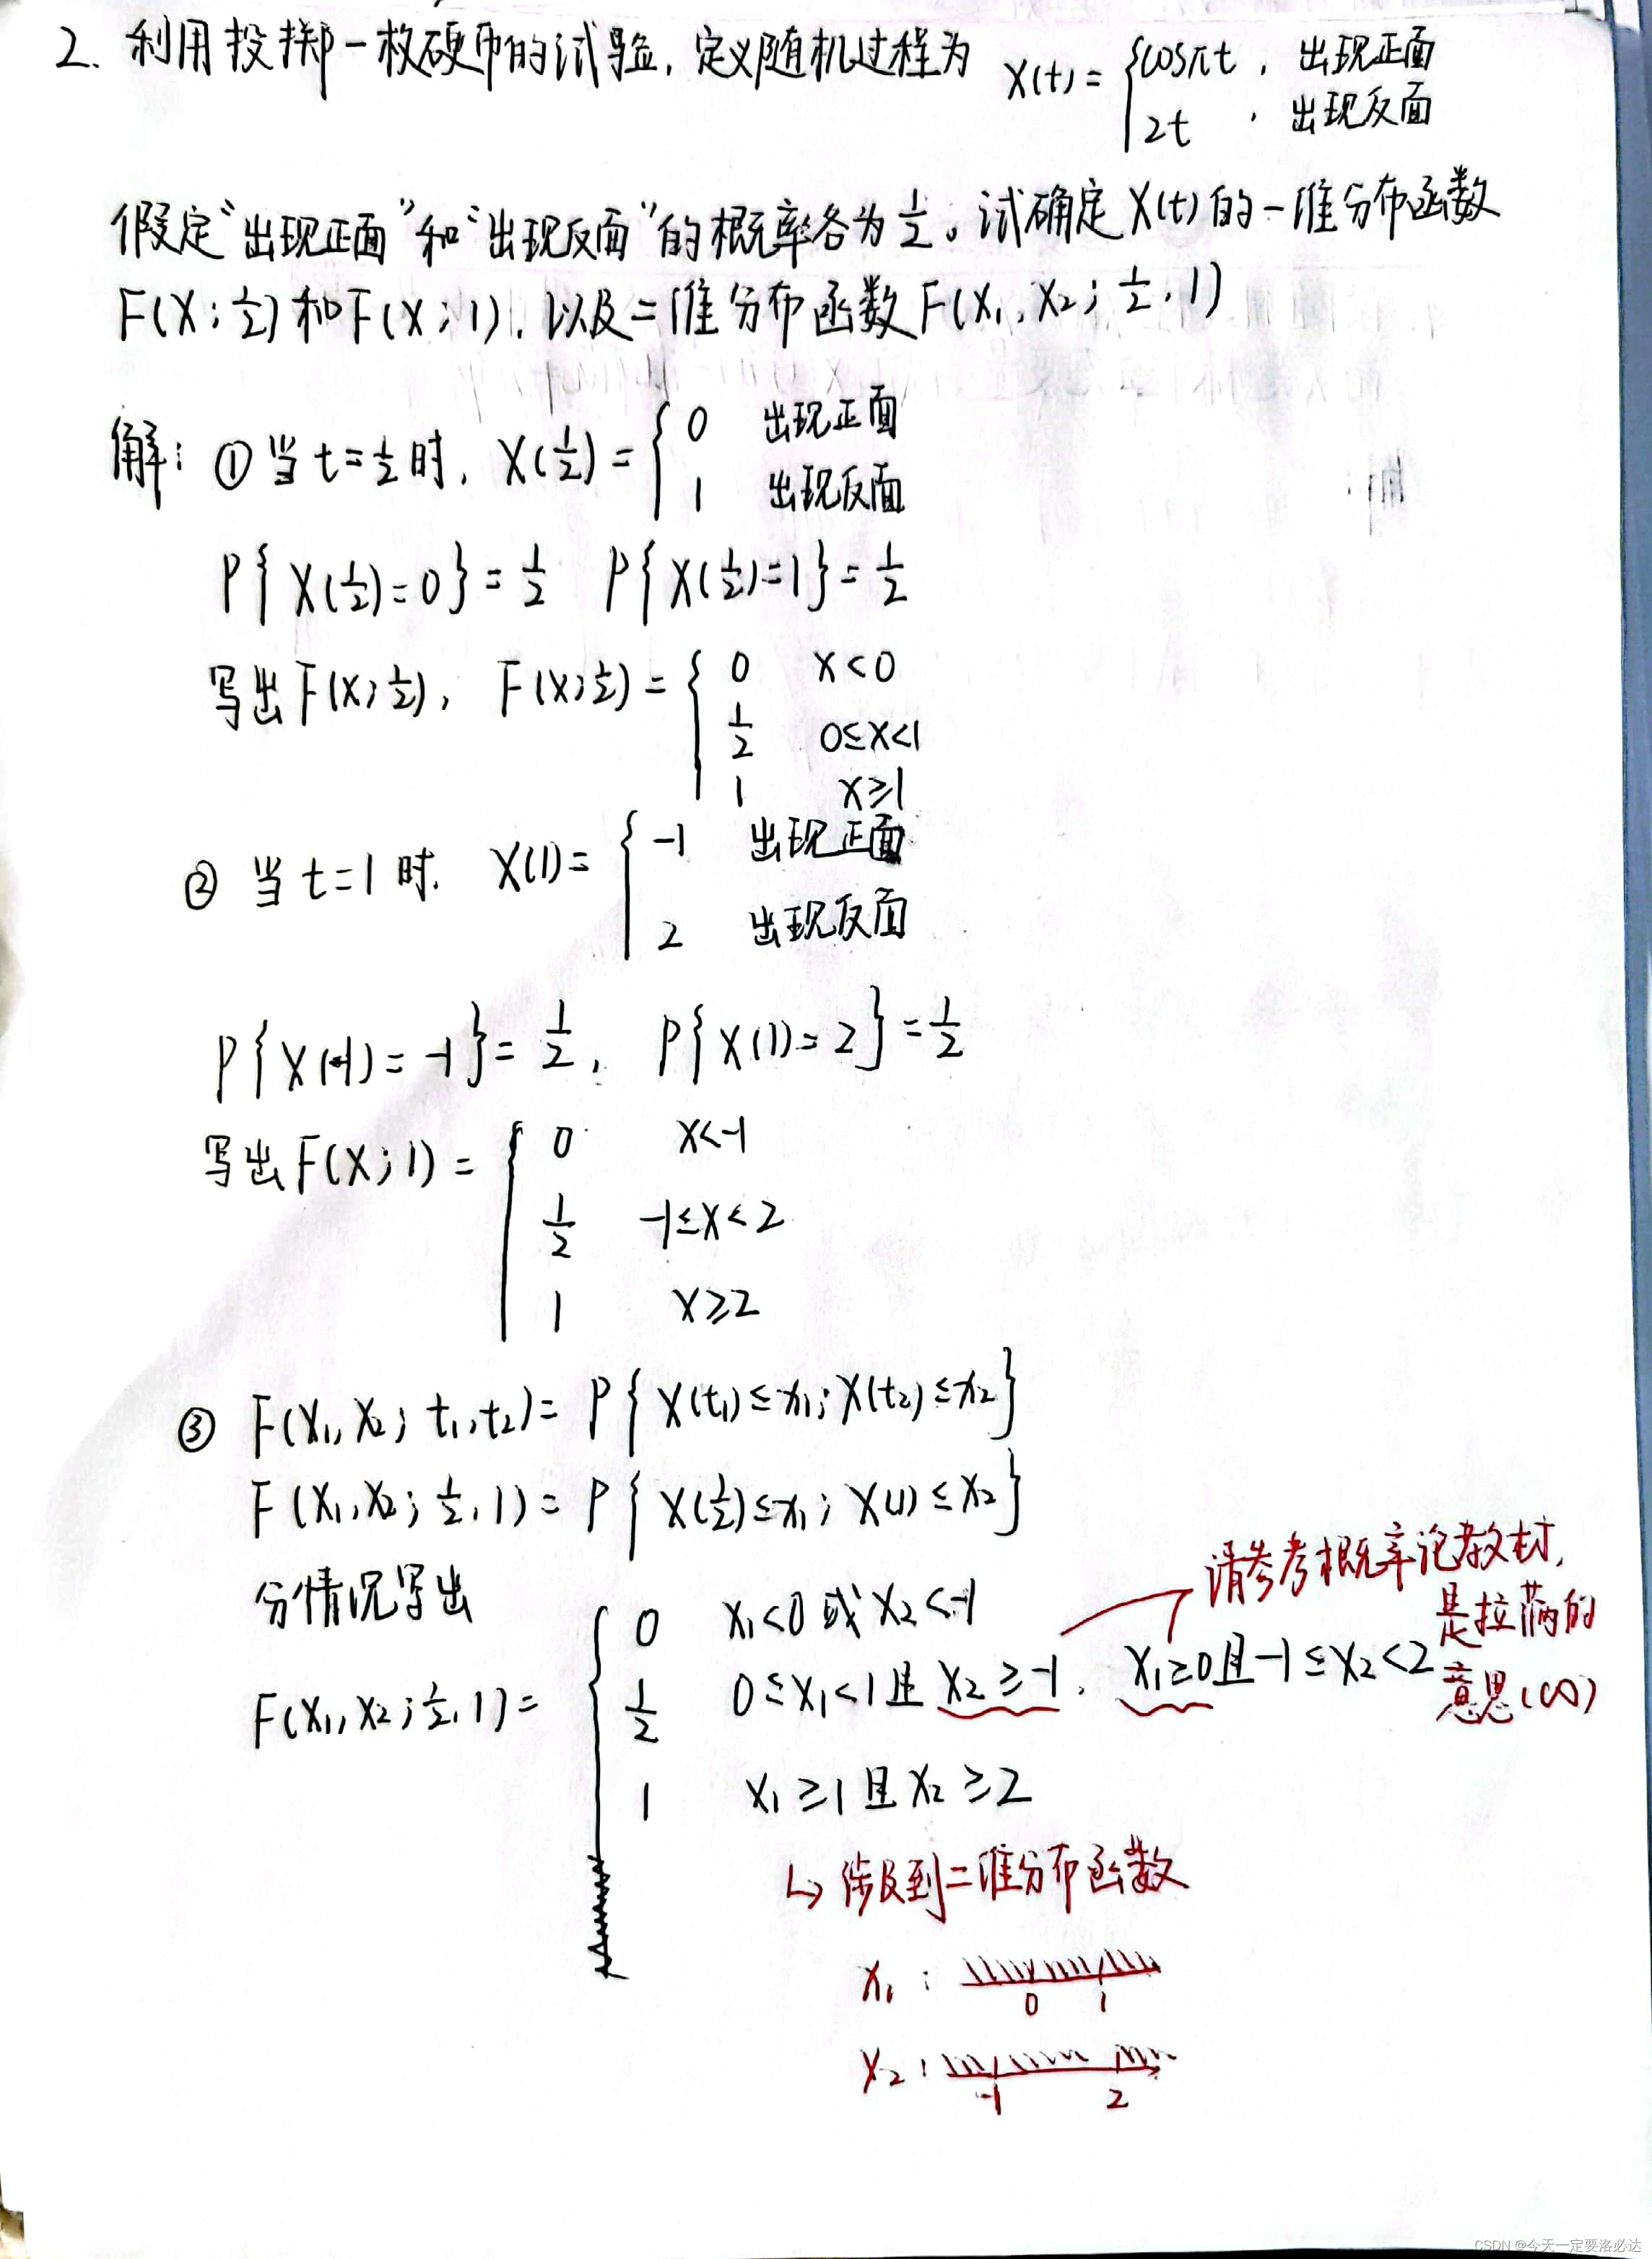 2. 利用投掷一枚硬币的试验,定义随机过程为 X(t) = { cosπt, 出现正面
2t , 出现反面
假定“出现正面”和“出现反面”的概率各为 1/2。试确定X(t)的一维分布函数
F(X; 1/2) 和F(X; 1), 以及二维分布函数F(X₁, X₂; 1/2, 1)
解: ① 当 t=1/2 时, X(1/2) = { 0 出现正面
1 出现反面
P{ X(1/2)=0 } = 1/2 P{ X(1/2)=1 } = 1/2
写出F(X; 1/2), F(X; 1/2) = { 0 X<0
1/2 0≤X<1
1 X≥1
② 当 t=1 时, X(1)= { -1 出现正面
2 出现反面
P{ X(1) = -1 } = 1/2, P{ X(1)=2 } = 1/2
写出F(X; 1) = { 0 X<-1
1/2 -1≤X<2
1 X≥2
③ F(X₁, X₂; t₁, t₂) = P{ X(t₁)≤x₁; X(t₂)≤x₂ }
F(X₁, X₂; 1/2, 1) = P{ X(1/2)≤x₁; X(1)≤x₂ }
分情况写出
请参考概率论教材,
是拉满的
意思(∞)
F(X₁, X₂; 1/2, 1) = { 0 X₁<0 或 X₂<-1
1/2 0≤X₁<1且 X₂≥-1, X₁≥0且-1≤X₂<2
1 X₁≥1且X₂≥2
↳ 涉及到二维分布函数
X₁: 0 1
X₂: -1 2
CSDN @今天一定要洛必达